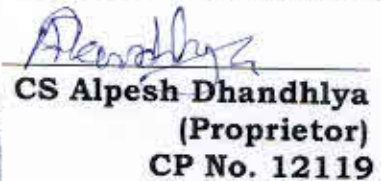 CS Alpesh Dhandhlya
(Proprietor)
CP No. 12119